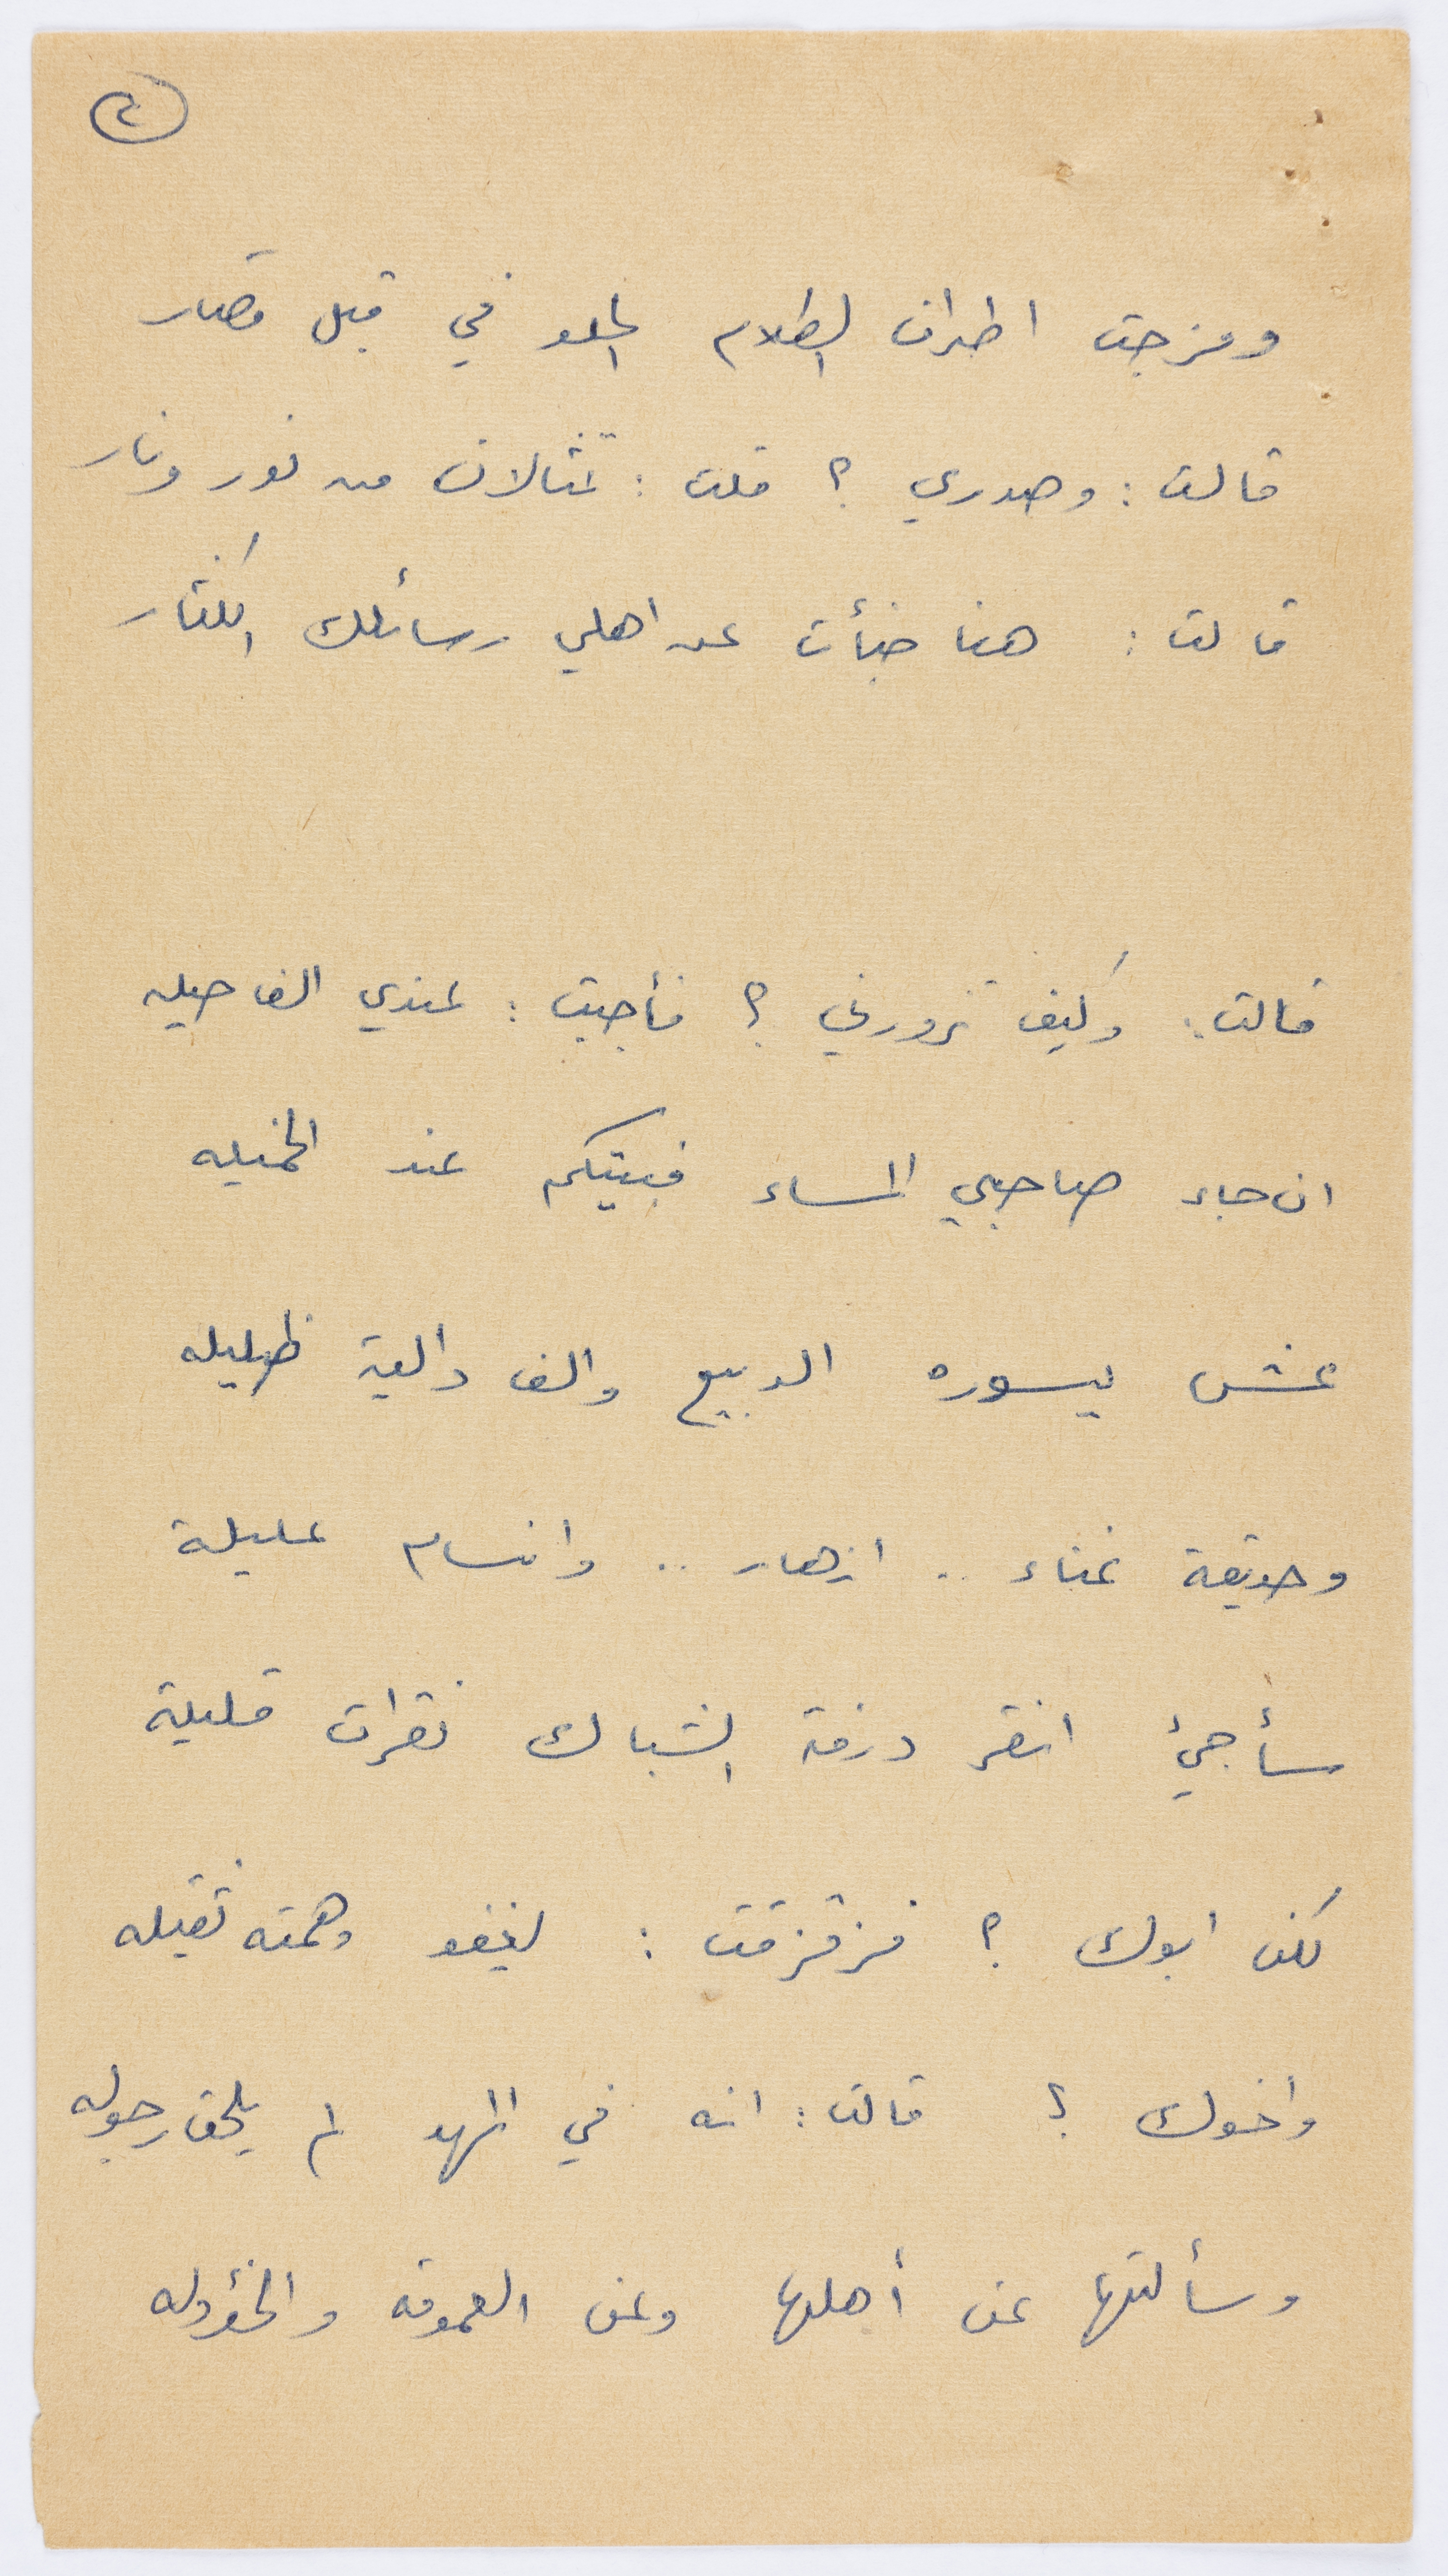 ٢
ومزجت اطراف الظلام الحلو في قبل قصار
قالت : وصدري ؟ قلت : تمثالان من نور ونار
قالت : هنا خبأت عن اهلي رسائلك الكثار
قالت : وكيف تزورني ؟ فأجبت : عندي الف حيله
ان جاء صاحبي المساء فبيتكم عند الخميله
عش يسوره الربيع والف دالية ظليله
وحديقة غناء .. ازهار .. وانسام عليلة
سأجيئ انقر درفة الشباك نقرات قليلة
لكن ابوك ؟ فزقزقت : يغفو وهمته ثقيله
واخوك ؟ قالت : انه في المهد لم يلحق رجوله
وسألتها عن أهلها وعن العمومه والخؤوله